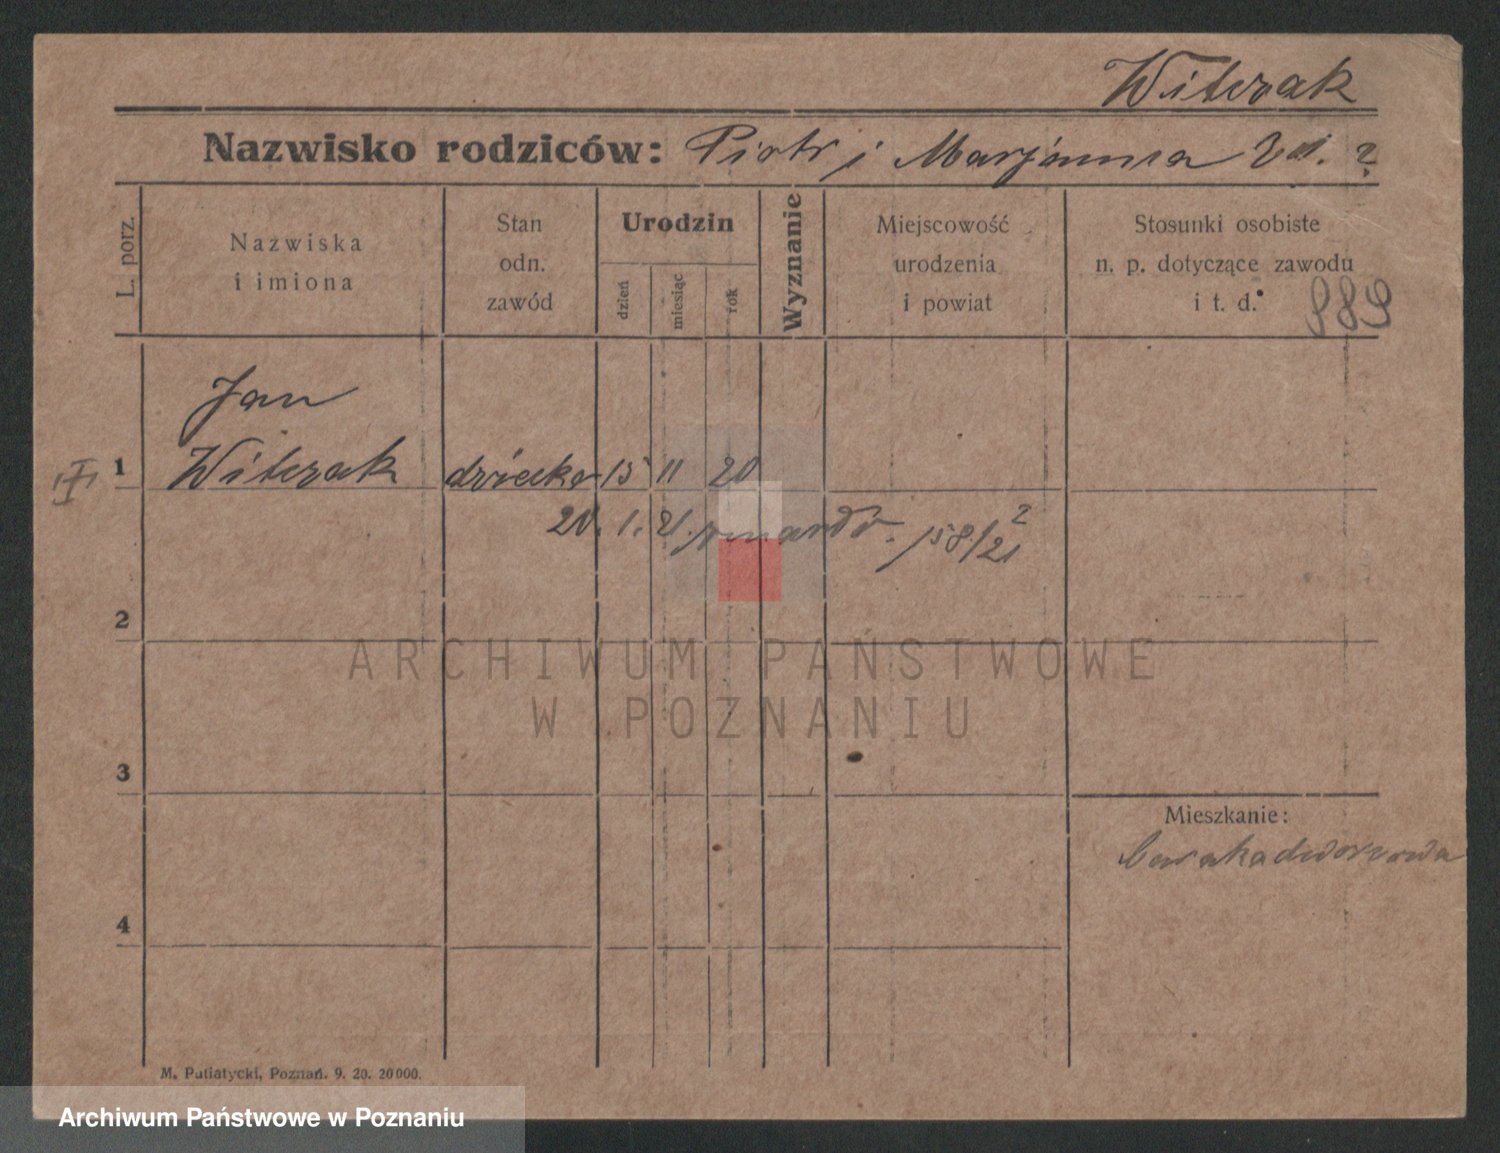 Witczak
Nazwisko rodziców: Piotr i Marjanna
L. porz.
Nazwiska
i imiona
Stan
odn.
zawód
Urodzin
dzień
miesiąc
rok
Wyznanie
Miejscowość
urodzenia
i powiat
Stosunki osobiste
n. p. dotyczące zawodu
i t. d.
Jan
1 Witczak dziecko 15 11 20
20. 1. 21. zmarło 158/21
2
ARCHIWUM PAŃSTWOWE
W POZNANIU
3
Mieszkanie:
4
M. Putiatycki, Poznań. 9. 20. 20000.
Archiwum Państwowe w Poznaniu